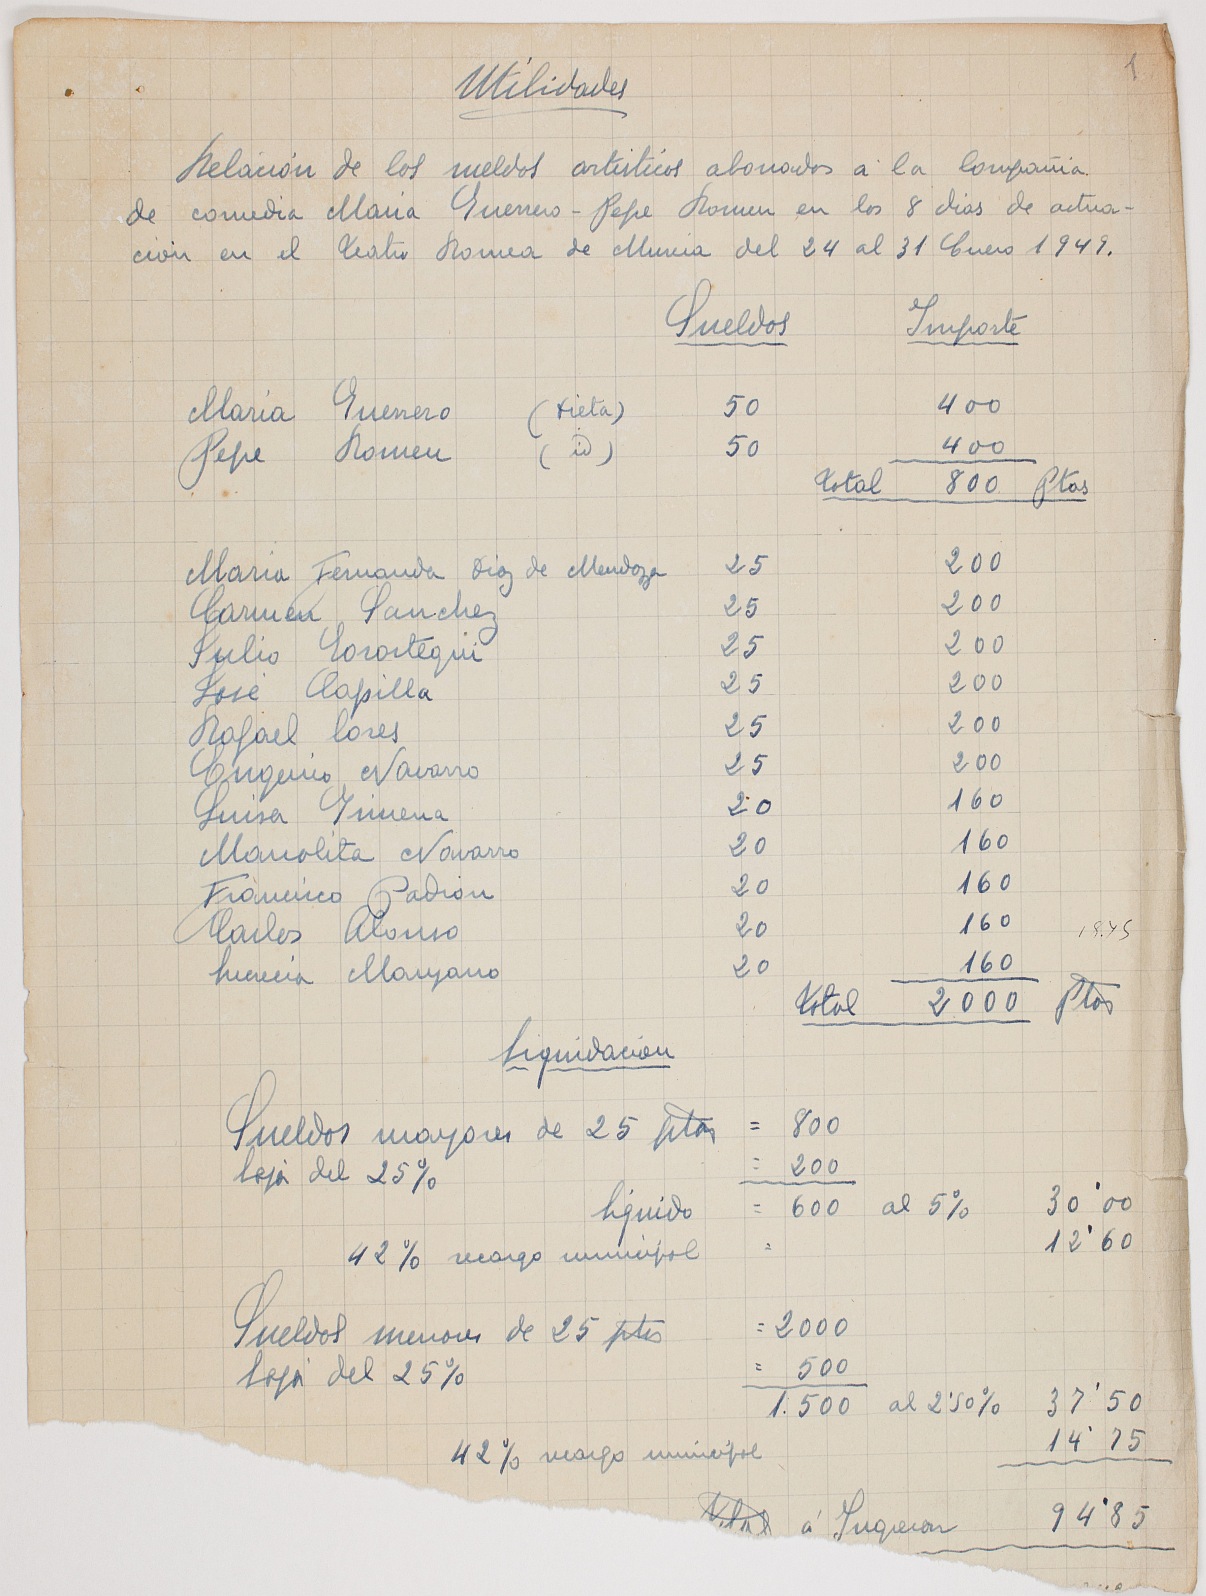 1
Utilidades
Relación de los sueldos artisticos abonados a la Compañia
de comedia Maria Guerrero - Pepe Romeu en los 8 dias de actua-
ción en el Teatro Romea de Murcia del 24 al 31 Enero 1949.
Sueldos Importe
Maria Guerrero (dieta) 50 400
Pepe Romeu (id) 50 400
Total 800 Ptas
Maria Fernanda Diaz de Mendoza 25 200
Carmen Sanchez 25 200
Julio Gorostegui 25 200
José Capilla 25 200
Rafael Cores 25 200
Eugenio Navarro 25 200
Luisa Gimena 20 160
Manolita Navarro 20 160
Francisco Padrón 20 160
Carlos Alonso 20 160
Lucrecia Manzano 20 160
Total 2000 Ptas
Liquidación
Sueldos mayores de 25 ptas = 800
baja del 25% = 200
liquido = 600 al 5% 30'00
42% recargo municipal = 12'60
Sueldos menores de 25 ptas = 2000
baja del 25% = 500
1.500 al 2'50% 37'50
42% recargo municipal 14'75
Total á Ingresar 94'85